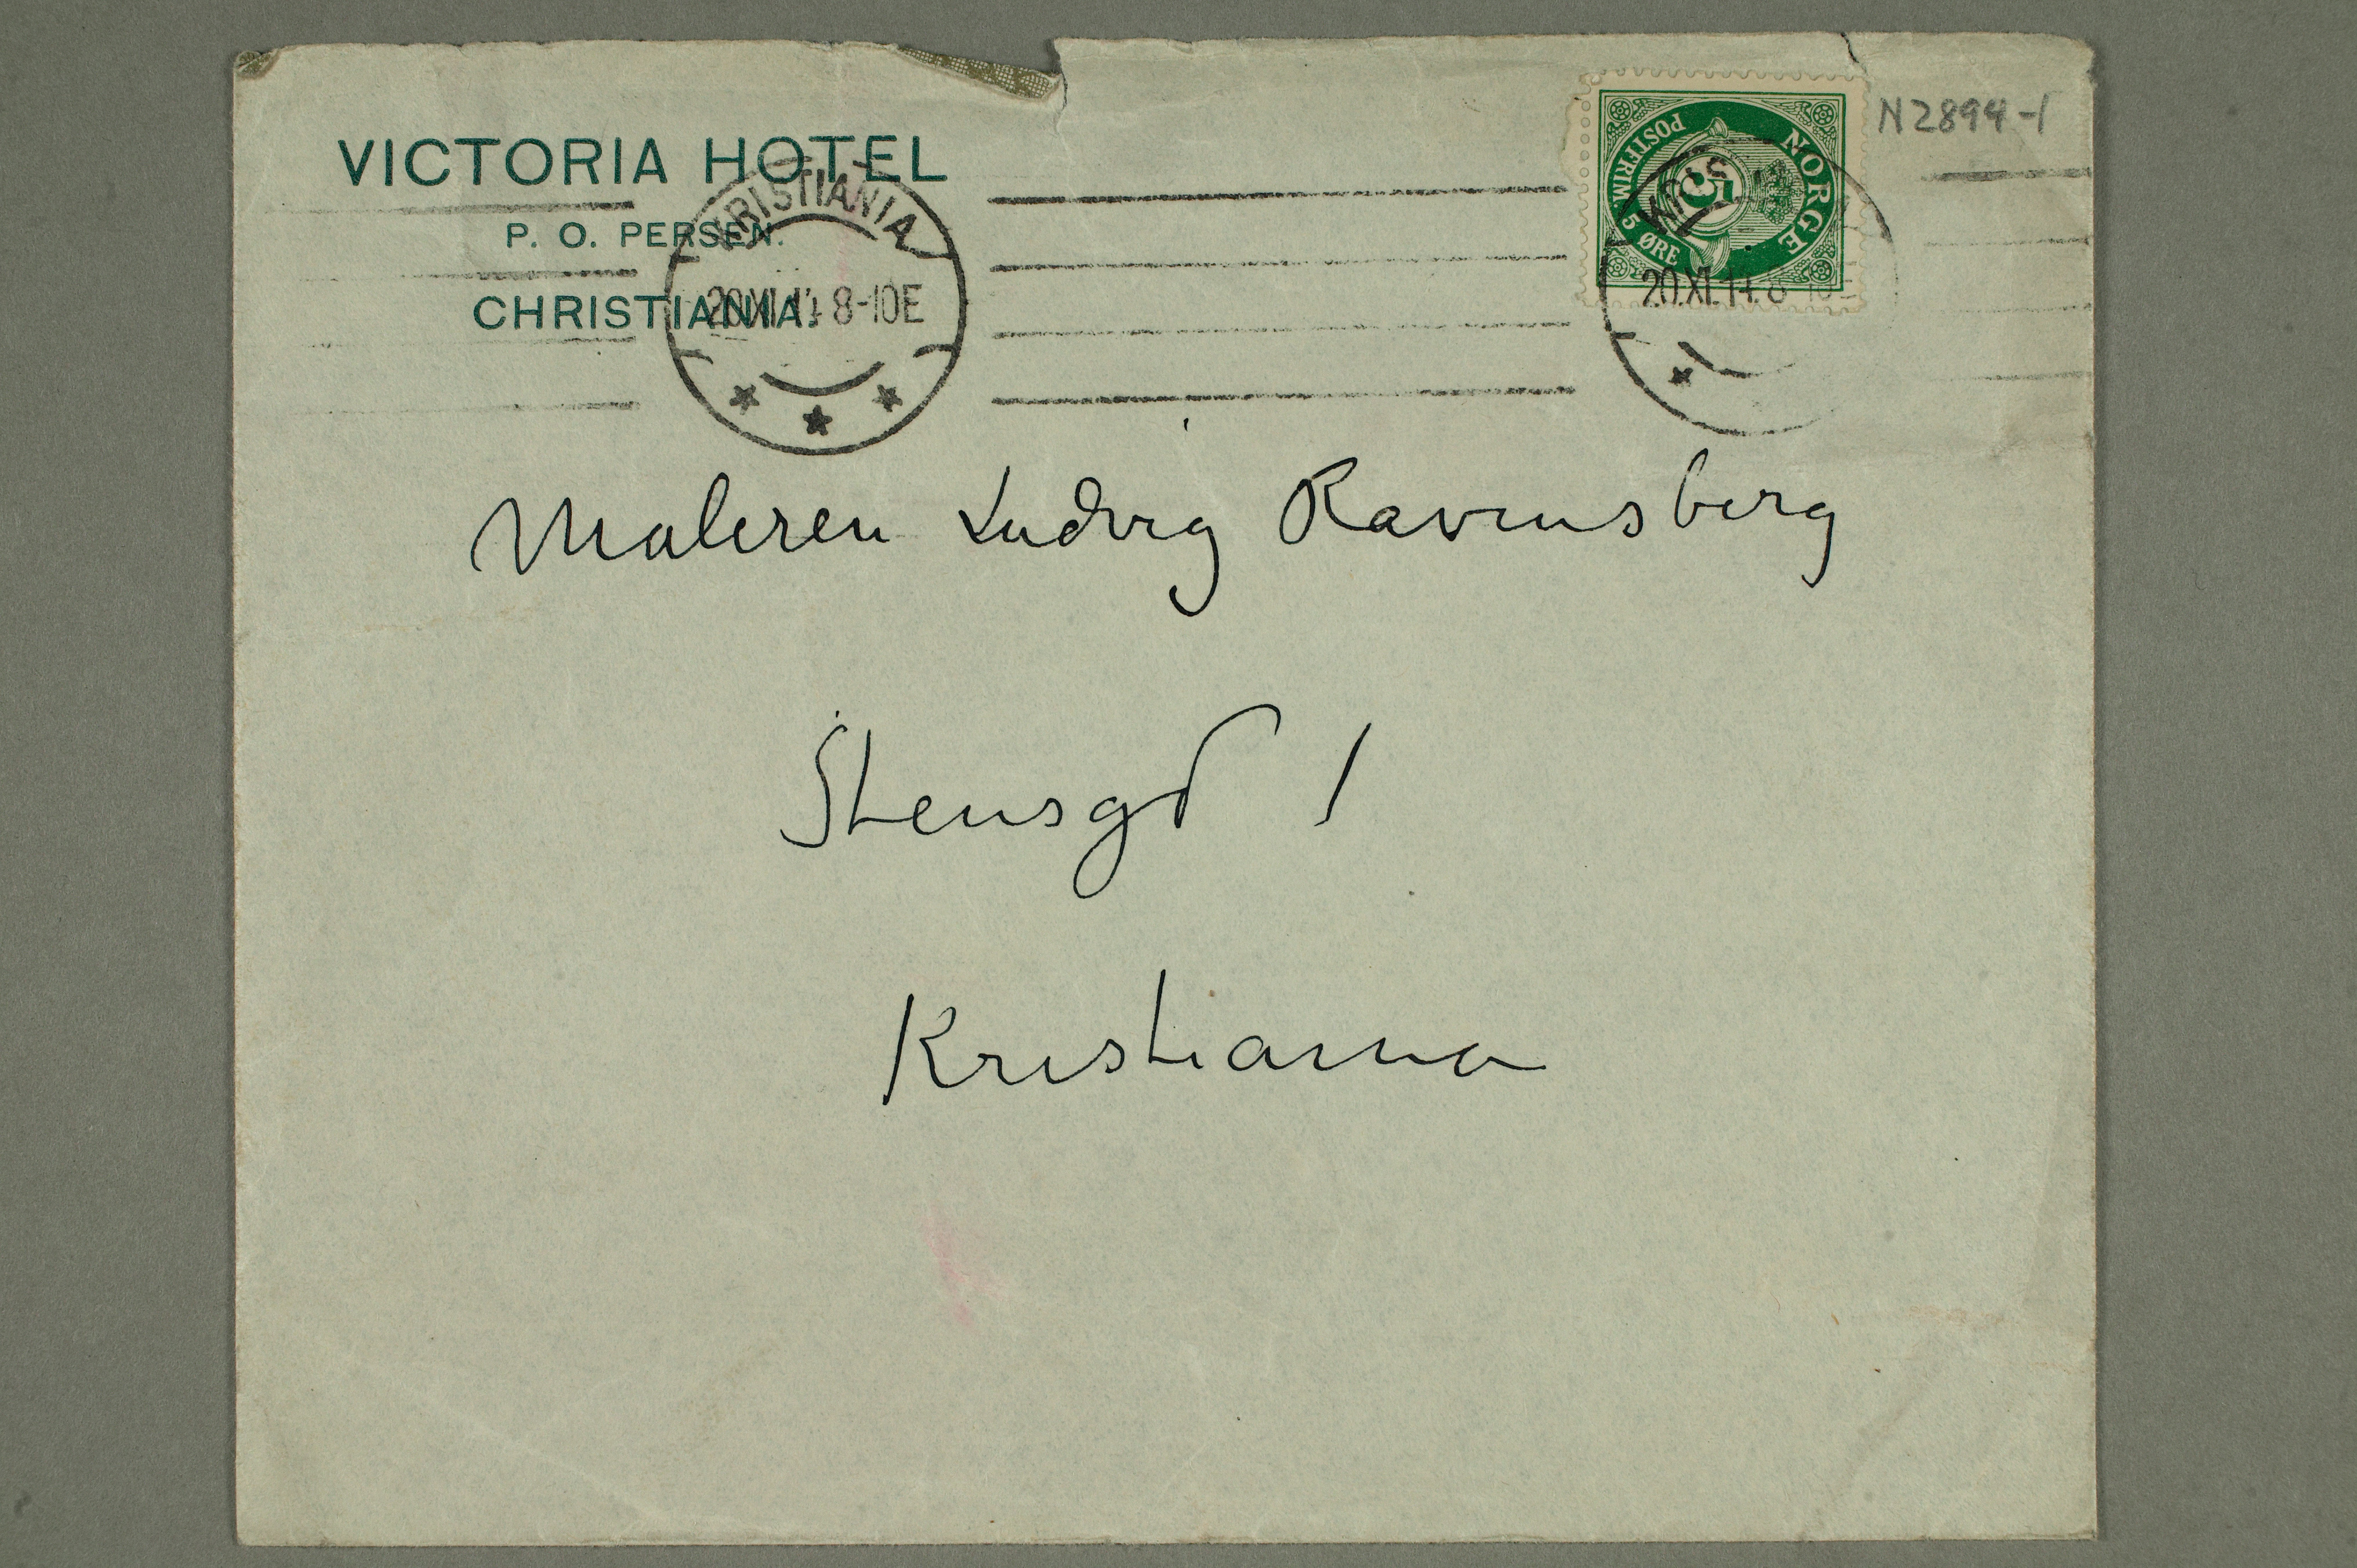 VICTORIA HOTEL
P. O. PERSEN.
CHRISTIANIA.
KRISTIANIA
20.XI.14 8-10E
NORGE
POSTFRIM
5 ØRE
5
KRIS
20.XI.14 8-10E
N 2894-1
Maleren Ludvig Ravensberg
Stensgd 1
Kristiania